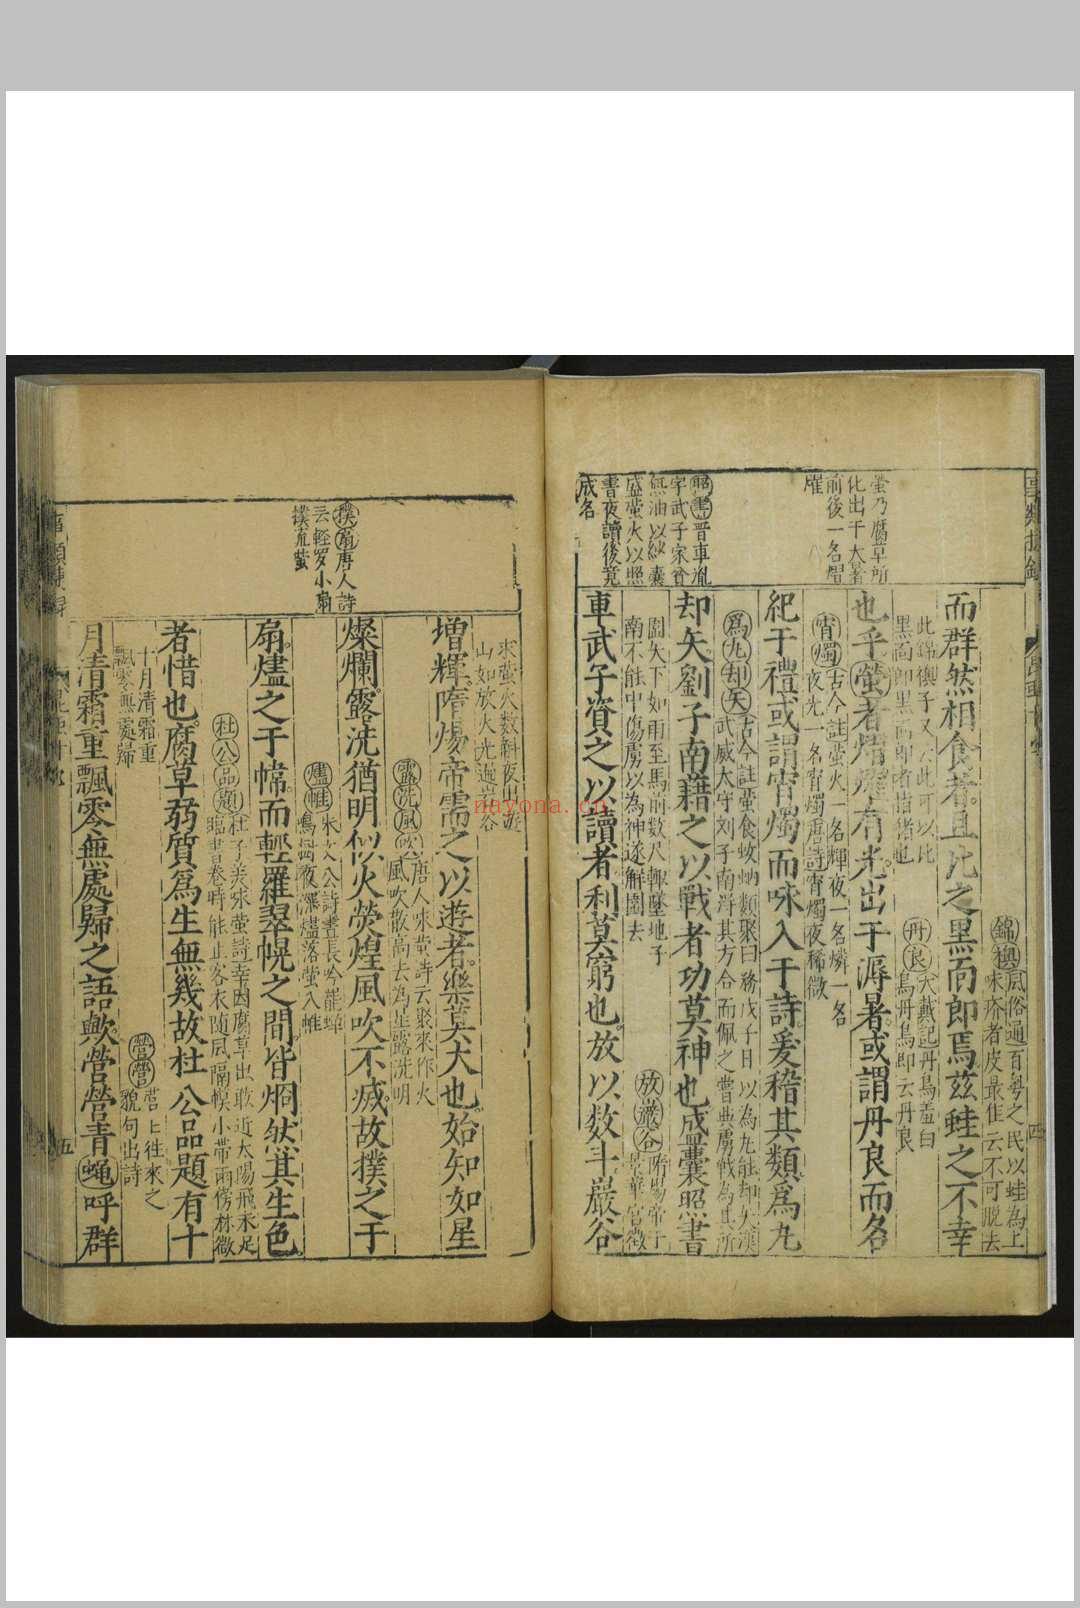 螢乃腐草所
化出于大暑
前後一名熠
燿
昭書晉車胤
字武子家貧
無油以紗囊
盛螢火以照
書夜讀後竟
成名
錦襖風俗通百粤之民以蛙為上
味疥者皮最佳云不可脱去
而群然相食者且比之黑面郎焉茲蛙之不幸
此錦襖子又云此可以比
黑面郎黑面郎者指猪也
丹良大戴記丹鳥羞白
鳥丹鳥即云丹良
也乎螢者熠燿有光出于溽暑或謂丹良而名
宵燭古今註螢火一名輝夜一名燐一名
夜光一名宵燭唐詩宵燭夜稀微
紀于禮或謂宵燭而味入于詩爰稽其類為九
為九却矢古今註螢食蚊蚋類聚曰務戊子日以為九能却矢漢
武威太守刘子南得其方合而佩之嘗與虜戰為其所
却矢劉子南藉之以戰者功莫神也盛囊照書
圍矢下如雨至馬前数尺輒墜地子
南不能中傷虜以為神遂解圍去
放巖谷隋煬帝于
景華宮徵
車武子資之以讀者利莫窮也放以数斗巖谷
求螢火数斛夜出遊
山如放火光遍岩谷
增輝隋煬帝需之以遊者樂莫大也始知如星
露洗風吹唐人味螢詩云聚來作火
風吹散高去為星露洗明
燦爛露洗猶明似火熒煌風吹不㓕故撲之于
撲扇唐人詩
云輕罗小扇
撲流螢
爐帷朱文公詩晝長吟罷蟬
鳴樹夜深燼落螢入帷
扇燼之于幃而輕羅翠幌之間皆烱然其生色
杜公品題杜子美味螢詩幸因腐草出敢近太陽飛未足
臨書卷時能点客衣随風隔幙小帶雨傍林微
者惜也腐草弱質為生無幾故杜公品題有十
十月清霜重
飄零無處歸
營營營上徃來之
貌句出詩
月清霜重飄零無處歸之語歟營營青蠅呼群
四
五
nayona.cn